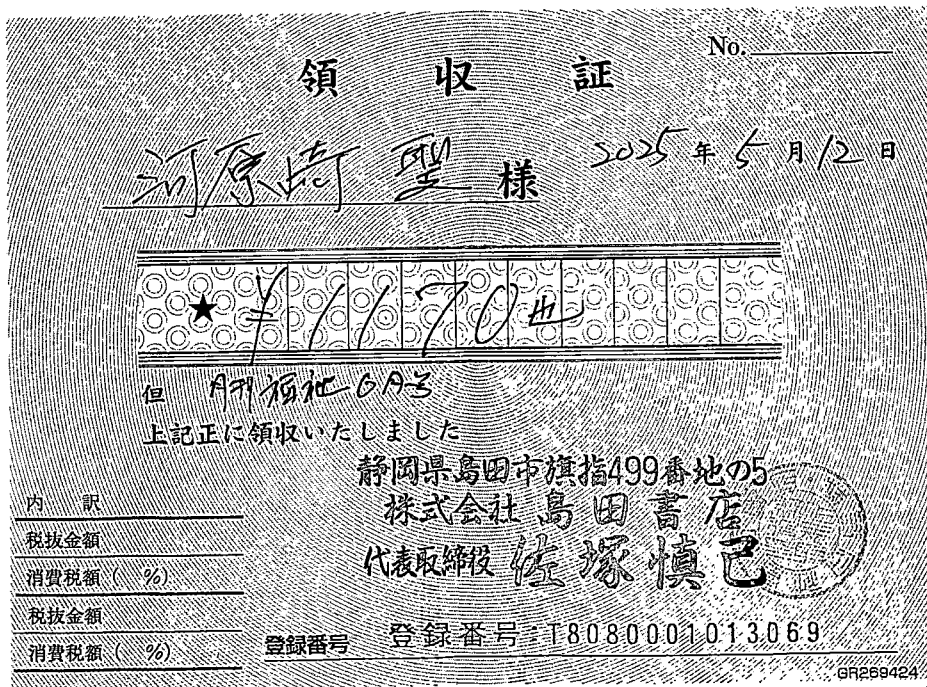 No.
領収証
河原崎 聖 様
2025年5月12日
★ ¥1170也
但 月刊福祉6月号
上記正に領収いたしました
静岡県島田市旗指499番地の5
株式会社 島田書店
代表取締役 佐塚慎己
内訳
税抜金額
消費税額( %)
税抜金額
消費税額( %)
登録番号 登録番号:T8080001013069
GR269424